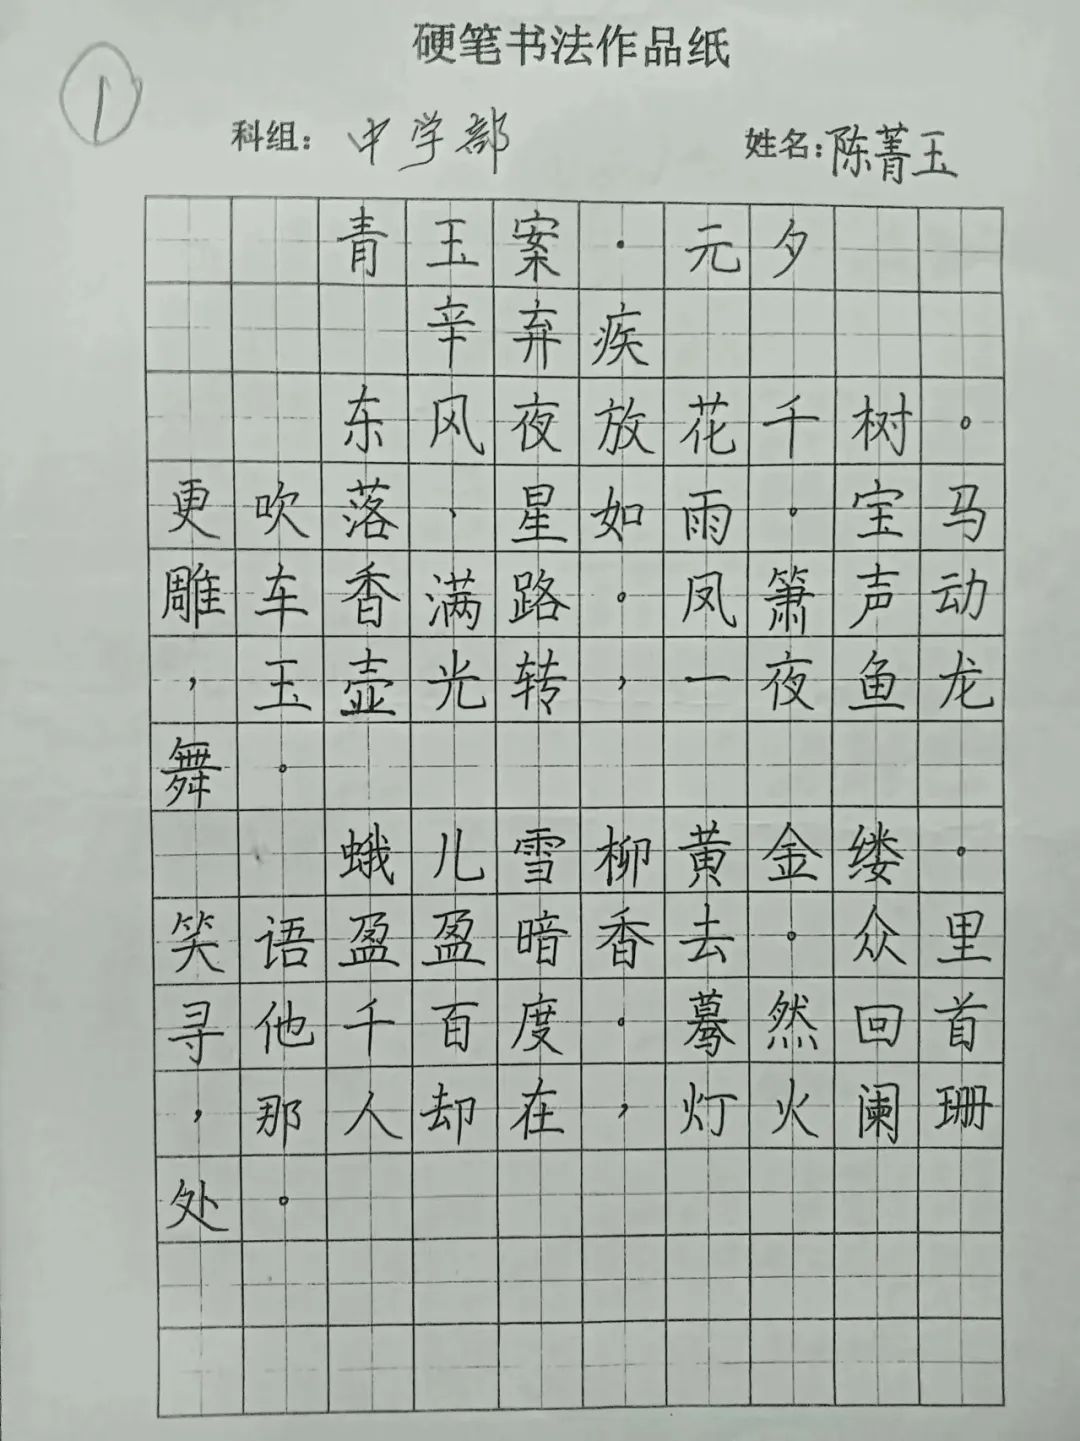 硬笔书法作品纸
1
科组：中学部 姓名：陈菁玉
青玉案·元夕
辛弃疾
东风夜放花千树。
更吹落、星如雨。宝马
雕车香满路。凤箫声动
，玉壶光转，一夜鱼龙
舞。
蛾儿雪柳黄金缕。
笑语盈盈暗香去。众里
寻他千百度。蓦然回首
，那人却在，灯火阑珊
处。